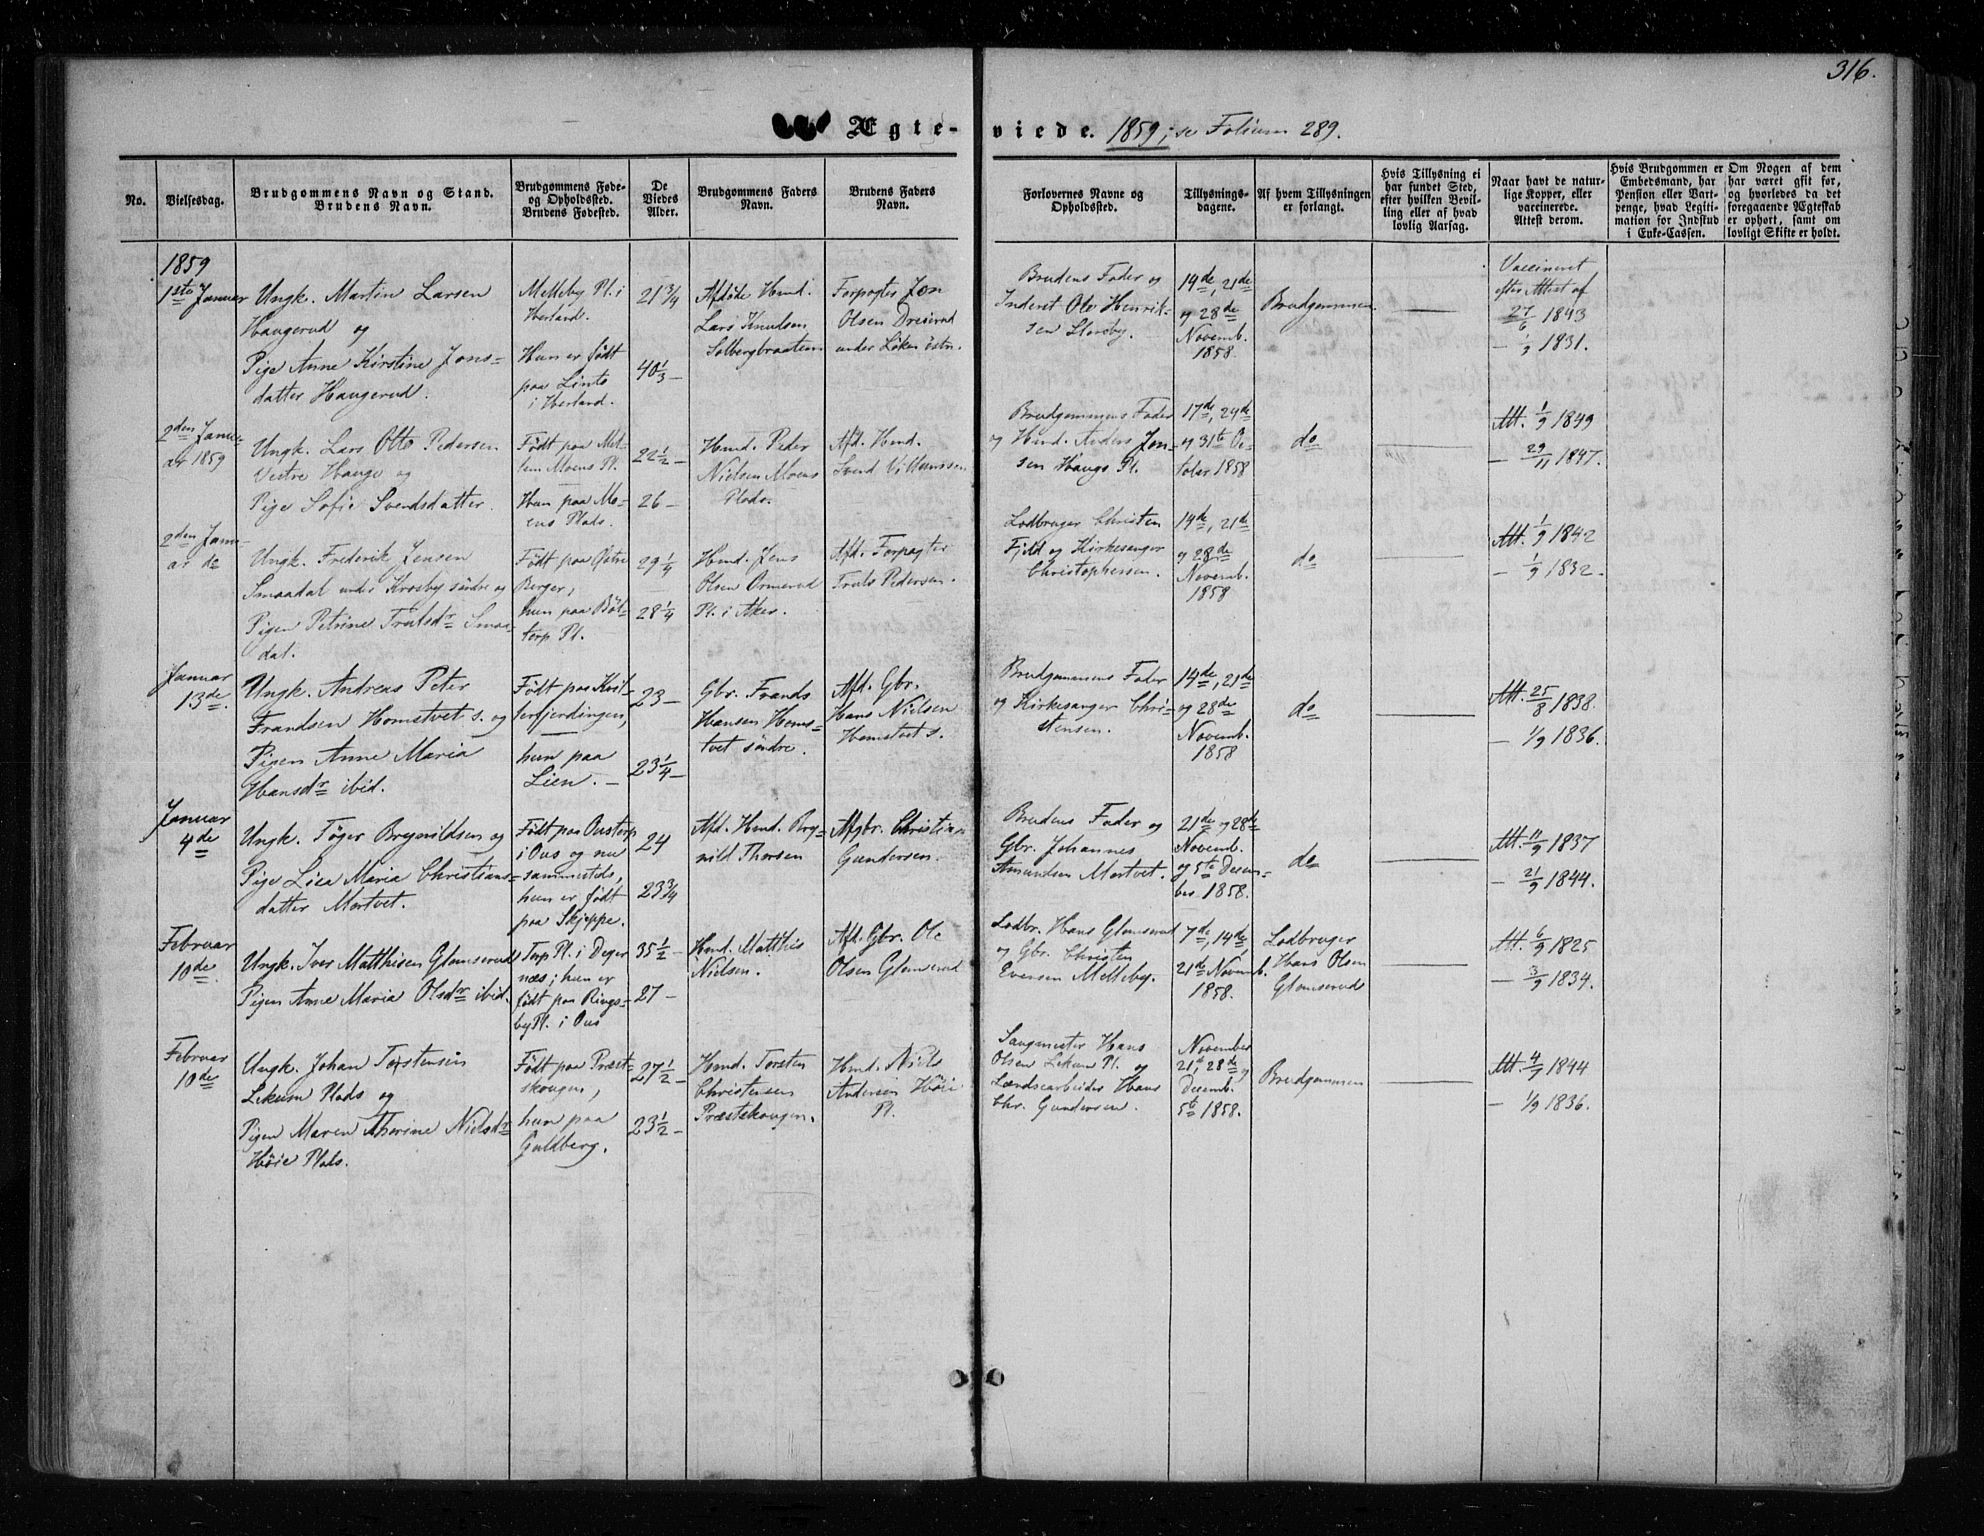 316.
Ægte-
viede. 1859; se Folium 289.
No.
Vielsesdag.
Brudgommens Navn og Stand.
Brudens Navn.
Brudgommens Føde-
og Opholdssted.
Brudens Fødested.
De
Viedes
Alder.
Brudgommens Faders
Navn.
Brudens Faders
Navn.
Forlovernes Navne og
Opholdssted.
Tillysnings-
dagene.
Af hvem Tillysningen
er forlangt.
Hvis Tillysning ei
har fundet Sted,
efter hvilken Bevil-
ling eller af hvad
lovlig Aarsag.
Naar havt de natur-
lige Kopper, eller
vaccinerede.
Attest derom.
Hvis Brudgommen er
Embedsmand, har
Pension eller Vart-
penge, hvad Legiti-
mation for Indskud
i Enke-Cassen.
Om Nogen af dem
har været gift før,
og hvorledes da det
foregaaende Ægteskab
er ophørt, samt om
lovligt Skifte er holdt.
1859
1ste Januar
Ungk. Martin Larsen
Haugerud og
Pige Anne Kirstine Jons-
datter Haugerud.
Melleby Pl. i
Herland.
Hun er født
paa Linto
i Herland.
21 3/4
40 1/3 —
Afdøde Hmd.
Lars Knudsen
Solbergbraaten
Forpagter Jon
Olsen
under Løken østn.
Brudens Fader og
Inderst Ole Henrik-
sen Slorsby.
14de, 21de
og 28de
Novemb.
1858.
Brudgommen
Vaccineret
efter Attest af
27/6 1843
— 1/9 1831.
2den Janu-
ar 1859
Ungk. Lars Otto Pedersen
Vestre Hauge og
Pige Sofie Svendsdatter.
Født paa Mel-
lem Moens Pl.
Hun paa Mo-
ens Plads.
22 1/2 —
26 —
Hmd. Peder
Nielsen Moens
Plads.
Afd. Hmd.
Svend Villumssen
Brudgommens Fader
og Hmd. Anders Jon-
sen Haugs Pl.
17de, 24de
og 31te Oc-
tober 1858
do
Att. 1/9 1849
— 29/11 1847.
2den Janu-
ar do
Ungk. Frederik Jensen
Smaadal under Krosby søndre og
Pigen Petrine Trulsdr Smaa-
dal.
Født paa Østre
Berger,
hun paa Böl-
terp Pl.
29 1/4
28 1/4
Hmd. Jens
Olsen Ormerud
Pl. i Aker.
Afd. Forpagter
Truls Pedersen.
Lodbruger Christen
Fjeld og Kirkesanger
Christophersen.
14de, 21de
og 28de
Novemb.
1858
do
Att. 1/9 1842
— 1/9 1832.
Januar
13de.
Ungk. Andreas Peter
Frandsen Homstvet s. og
Pigen Anne Maria
Hansdr ibid.
Født paa
hun paa
Lien. —
23 —
23 1/4 —
Gbr. Frands
Hansen Homs-
tvet søndre.
Afd. Gbr.
Hans Nielsen
Homstvet s.
Brudgommens Fader
og Kirkesanger Chri-
stensen.
14de, 21de
og 28de
Novemb.
1858
do
Att. 25/8 1838.
— 1/9 1836.
Januar
4de
Ungk. Töger Brynildsen og
Pige Lisa Maria Christians-
datter Mortvet.
Født paa Oustorp
i Ous og nu
sammesteds,
hun er født
paa Skjeppe.
24
23 3/4
Afd. Hmd. Bry-
nild Thorsen
Afgbr. Christian
Gundersen.
Brudens Fader og
Gbr. Johannes
Amundsen Mortvet.
21de og 28de
Novemb.
og 5te Decem-
ber 1858.
do
Att. 11/9 1837
— 21/9 1844.
Februar
10de.
Ungk. Iver Matthisen Glomserud
Pigen Anne Maria Olsdr ibid.
Torp Pl. i Deger
næs; hun er
født paa Rings-
by Pl. i Ous
35 1/2 —
27 —
Hmd. Matthis
Nielsen.
Afd. Gbr. Ole
Olsen Glomserud
Lodbr. Hans Glomserud
og Gbr. Christen
Eversen Melleby.
7de, 14de,
21de Novemb.
1858.
Lodbruger
Hans Olsen
Glomserud
Att. 6/9 1825
— 3/9 1834.
Februar
10de
Ungk. Johan Torstensen
Lekum Plads og
Pigen Maren Thorine Nielsdr
Höie Plads.
Født paa Præst-
skougen,
hun paa
Guldberg.
27 1/2 —
23 1/2 —
Hmd. Torsten
Christensen
Præsteskougen.
Hmd. Niels
Andersen Höie
Pl.
Saugmester Hans
Olsen Lekum Pl. og
Landsearbeider Hans
Chr. Gundersen.
November
21de, 28de,
Decemb.
5te 1858.
Brudgommen
Att. 4/7 1844
— 1/9 1836.